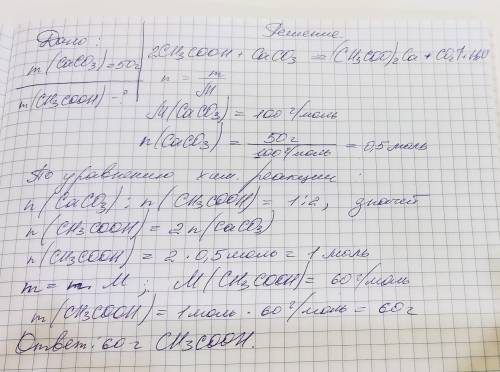 Дано: Решение
m(CaCO₃)=50г 2CH₃COOH + CaCO₃ = (CH₃COO)₂Ca + CO₂↑ + H₂O
m(CH₃COOH) - ? n = m/M
M(CaCO₃) = 100 г/моль
n(CaCO₃) = 50г / 100 г/моль = 0,5 моль
По уравнению хим. реакции
n(CaCO₃) : n(CH₃COOH) = 1:2, значит
n(CH₃COOH) = 2 n(CaCO₃)
n(CH₃COOH) = 2 · 0,5 моль = 1 моль
m = n · M ; M(CH₃COOH) = 60 г/моль
m(CH₃COOH) = 1 моль · 60 г/моль = 60 г
Ответ: 60 г CH₃COOH.